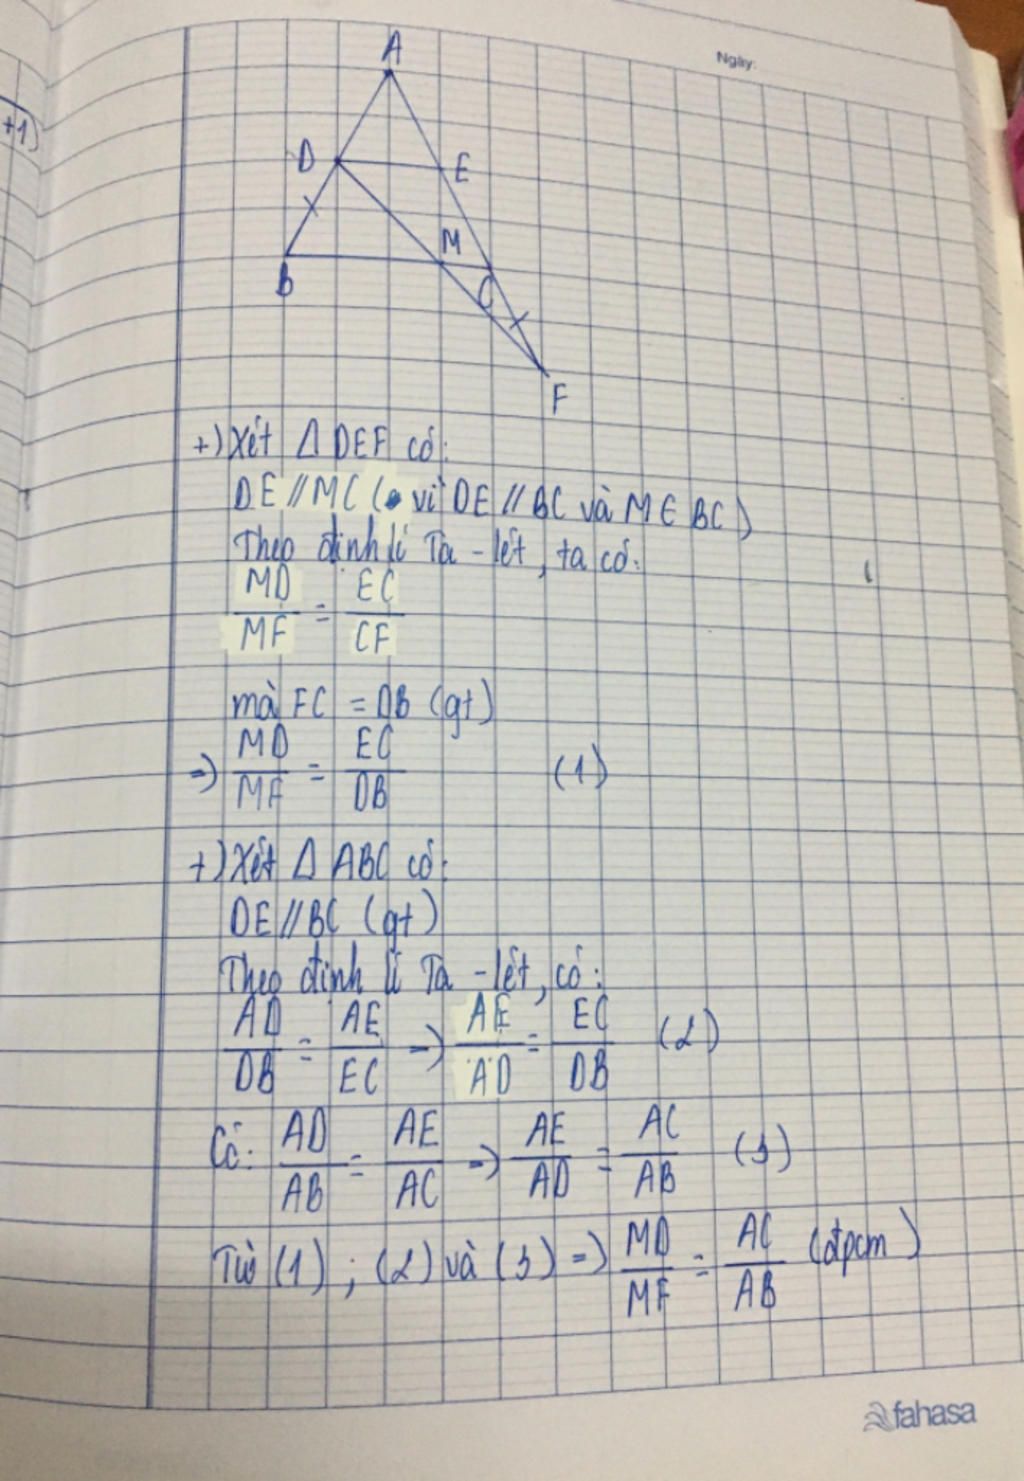 +1)
Ngày:
A
D
E
M
B
C
F
+) Xét Δ DEF có:
DE // MC ( vì DE // BC và M ∈ BC )
Theo định lí Ta - lét, ta có:
MD/MF = EC/CF
mà FC = DB (gt)
=> MD/MF = EC/DB (1)
+) Xét Δ ABC có:
DE // BC (gt)
Theo định lí Ta - lét, có:
AD/DB = AE/EC => AE/AD = EC/DB (2)
Có: AD/AB = AE/AC => AE/AD = AC/AB (3)
Từ (1) ; (2) và (3) => MD/MF = AC/AB (đpcm)
fahasa